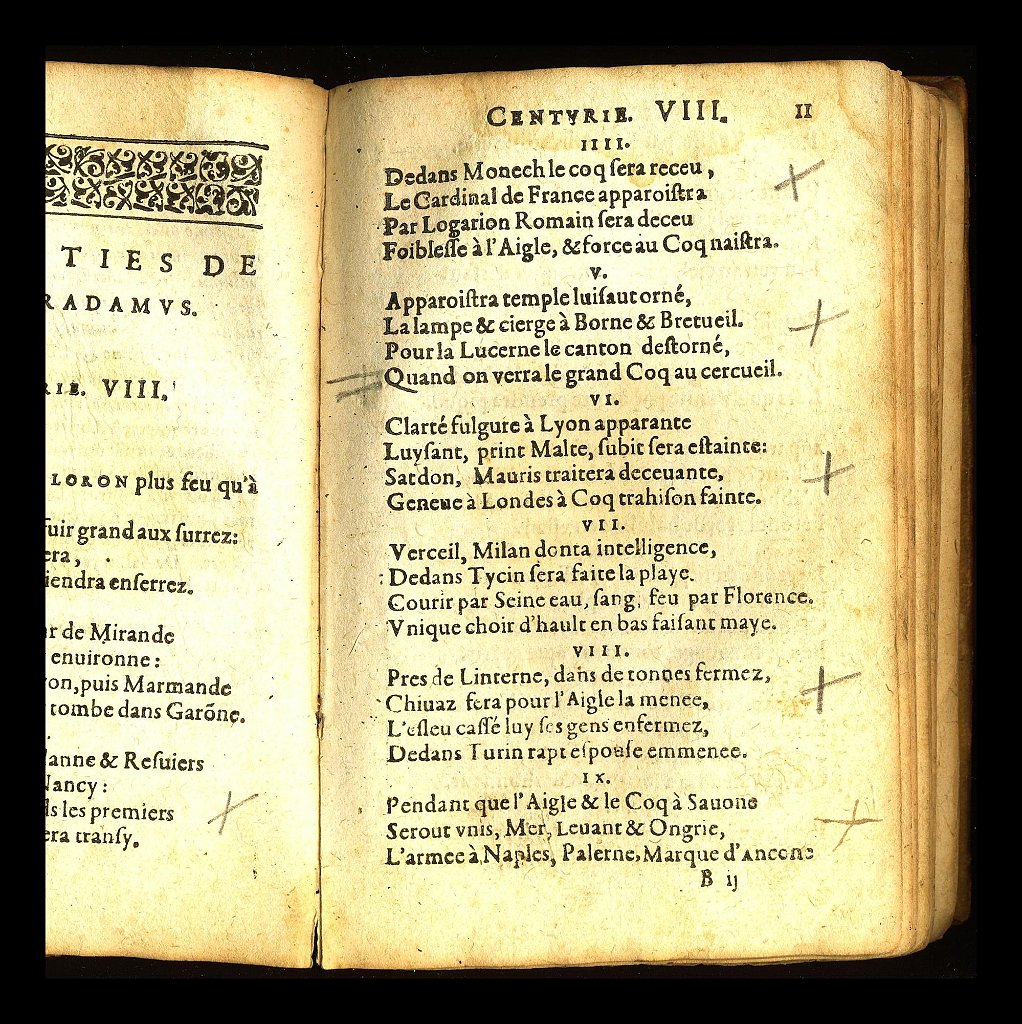 TIES DE
RADAMVS.
RIE. VIII.
LORON plus feu qu'à
fuir grand aux ſurrez:
era,
iendra enſerrez.
ar de Mirande
enuironne:
yon, puis Marmande
tombe dans Garõne.
anne & Reſuiers
Nancy:
ls les premiers
era tranſy.
CENTVRIE. VIII. 11
IIII.
Dedans Monech le coq ſera receu,
Le Cardinal de France apparoiſtra
Par Logarion Romain ſera deceu
Foibleſſe à l'Aigle, & force au Coq naiſtra.
V.
Apparoiſtra temple luiſaut orné,
La lampe & cierge à Borne & Bretueil.
Pour la Lucerne le canton deſtorné,
Quand on verra le grand Coq au cercueil.
VI.
Clarté fulgure à Lyon apparante
Luyſant, print Malte, ſubit ſera eſtainte:
Satdon, Mauris traitera deceuante,
Geneue à Londes à Coq trahiſon fainte.
VII.
Verceil, Milan donta intelligence,
Dedans Tycin ſera faite la playe.
Courir par Seine eau, ſang, feu par Florence.
Vnique choir d'hault en bas faiſant maye.
VIII.
Pres de Linterne, dans de tonnes fermez,
Chiuaz fera pour l'Aigle la menee,
L'eſleu caſſé luy ſes gens enfermez,
Dedans Turin rapt eſpouſe emmenee.
IX.
Pendant que l'Aigle & le Coq à Sauone
Serout vnis, Mer, Leuant & Ongrie,
L'armee à Naples, Palerne, Marque d'Ancone
B ij